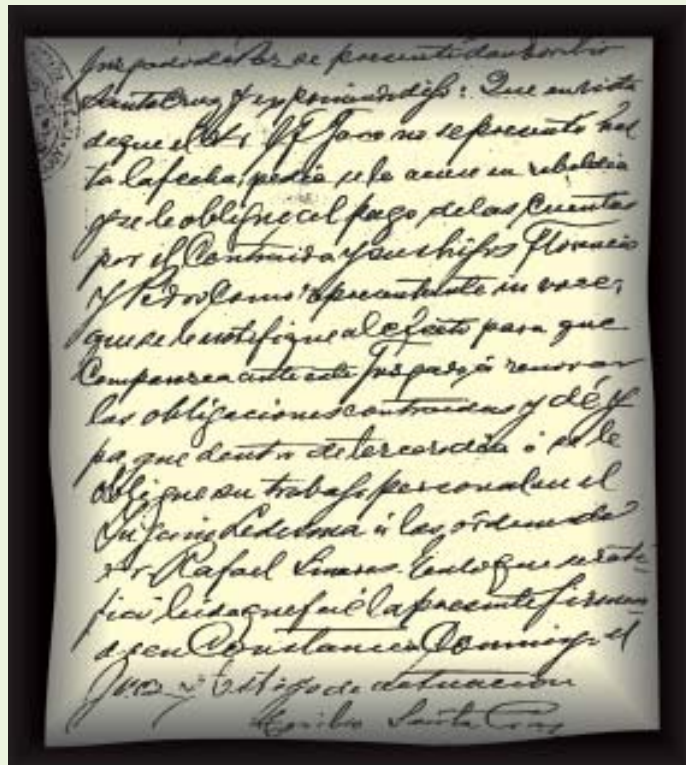 Juzgado de Paz se presentó don Toribio
Santa Cruz y exponiendo dijo: Que en vista
de que el Sr. Toro no se presentó has
ta la fecha, pedía se le acuse en rebeldía
y se le obligue al pago de las cuentas
por él Contraida y sus hijos Florencio
y Pedro Como representante in voce;
que se le notifique al efecto para que
Comparezca ante este Juzgado, á renovar
las obligaciones contraidas y dé y
pa que dentro de tercero dia ó se le
Obligue su trabajo personal en el
Ingenio Ledesma á las ordenes de
Sr Rafael Linares. En lo que se rati-
ficó leida que fué la presente firman-
do en Constancia Conmigo el
Juez y Testigo de actuacion
Santa Cruz